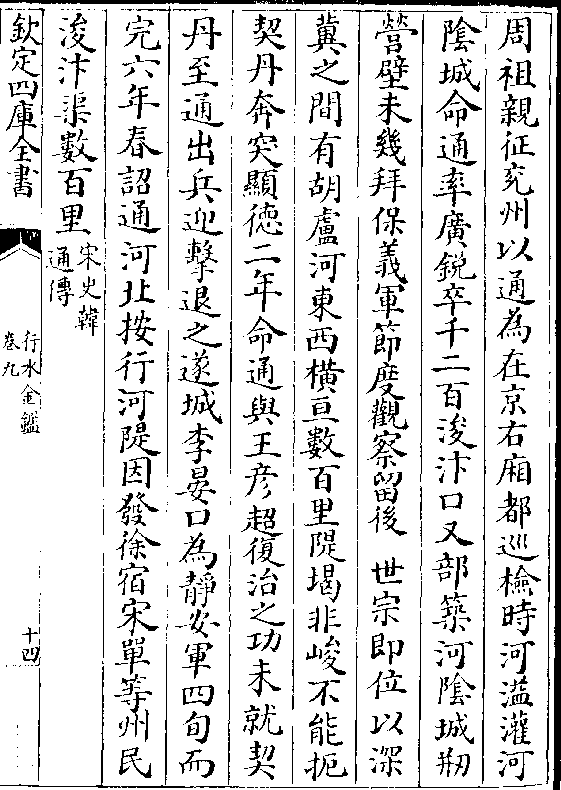 周祖親征兖州以通為在京右廂都巡檢時河溢灌河
陰城命通率廣銳卒千二百浚汴口又部築河陰城剏
營壁未幾拜保義軍節度觀察留後　世宗即位以深
冀之間有胡盧河東西橫亘數百里隄堨非峻不能扼
契丹奔突顯徳二年命通與王彦超復治之功未就契
丹至通出兵迎擊退之遂城李晏口為靜安軍四旬而
完六年春詔通河北按行河隄因發徐宿宋單等州民
浚汴渠數百里
宋史韓
通傳
欽定四庫全書
行水金鑑
卷九
十四